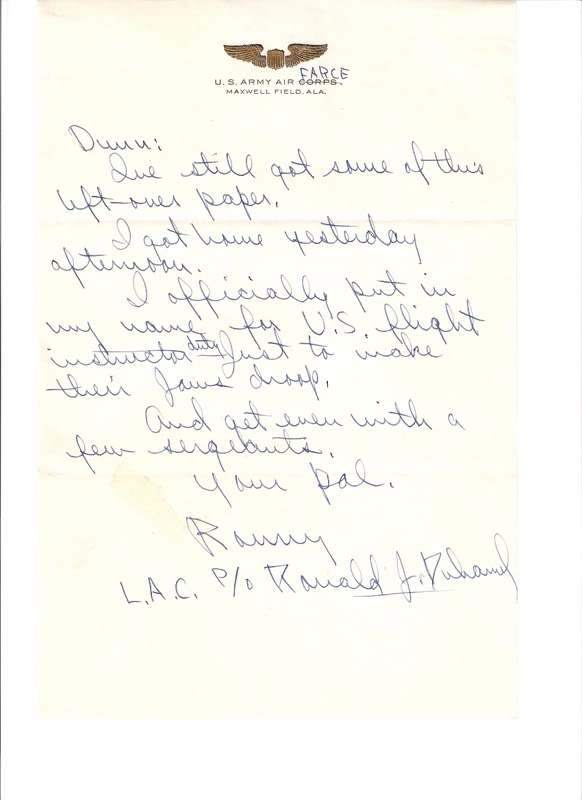 U.S. ARMY AIR CORPS. FARCE
MAXWELL FIELD, ALA.
Dunn:
I've still got some of this
left-over paper.
I got home yesterday
afternoon.
I officially put in
my name for U.S. flight
instructor duty Just to make
their Jaws droop.
And get even with a
few sergeants.
Your pal.
Ronny
L.A.C. P/O Ronald J. Duhamel